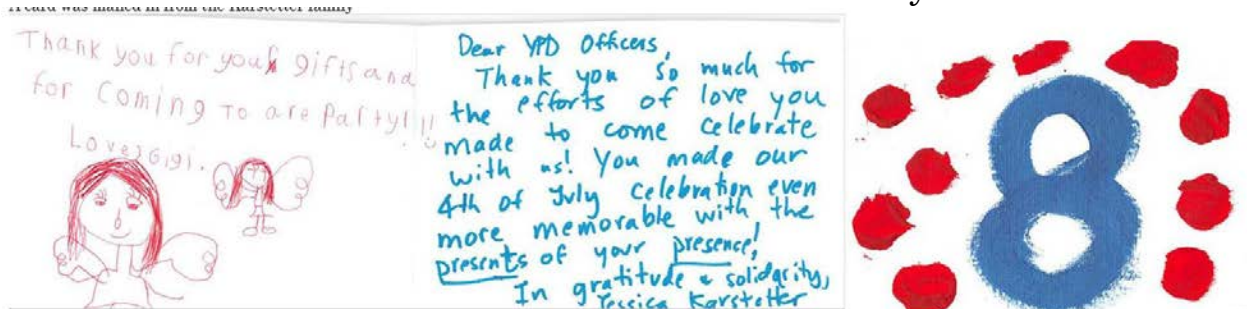 A card was mailed in from the Karstetter family
Thank you for your gifts and
for coming To are Party!!!
Love, Gigi.
Dear YPD Officers,
Thank you so much for
the efforts of love you
made to come celebrate
with us! You made our
4th of July celebration even
more memorable with the
presents of your presence!
In gratitude & solidarity,
Jessica Karstetter
8